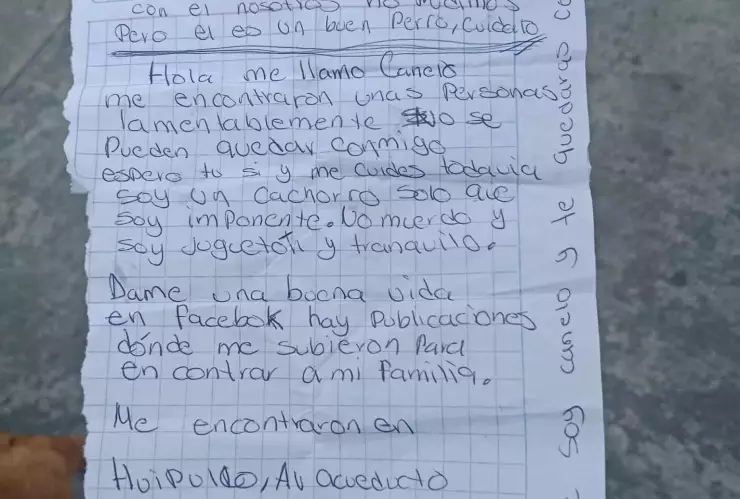 con el nosotros no pudimos
Pero el es un buen Perro, Cuidalo
Hola me llamo Canelo
me encontraron unas Personas
lamentablemente No se
Pueden quedar conmigo
espero tu si y me cuides todavia
soy un cachorro solo que
soy imponente. No muerdo y
soy juguetón y tranquilo.
Dame una buena vida
en facebok hay Publicaciones
dónde me subieron Para
en contrar a mi familia.
Me encontraron en
Huipulco, Av acueducto
soy canelo y te quedaras co